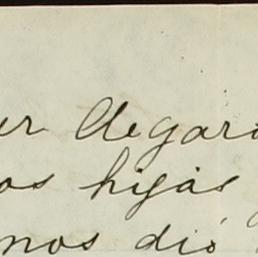 er llegara
os hijas
nos dió